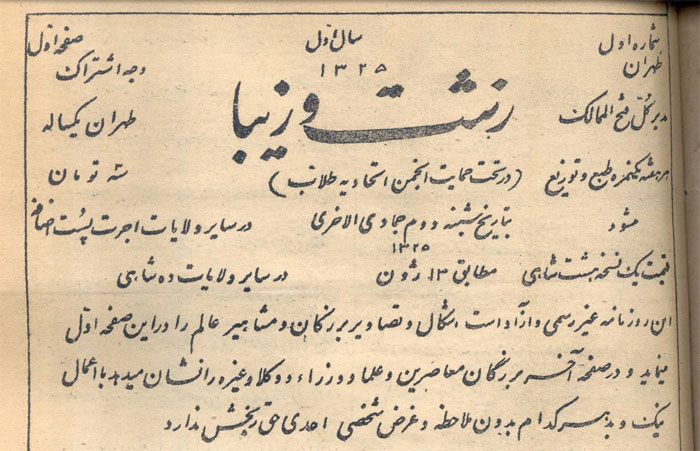 شماره اول سال اول صفحه اول
طهران ۱۳۲۵ وجه اشتراک
زشت و زیبا
مدیر کل فتح الممالک طهران یکساله
هر هفته یکنمره طبع و توزیع (در تحت حمایت انجمن اتحادیه طلاب) سه تومان
میشود بتاریخ شنبه دوم جمادی الاخری ۱۳۲۵ در سایر ولایات اجرت پست اضافه
قیمت یک نسخه هشت شاهی مطابق ۱۳ ژون در سایر ولایات ده شاهی
این روزنامه غیر رسمی و آزاد است اشکال و تصاویر بزرگان و مشاهیر عالم را در این صفحه اول
مینماید و در صفحه آخر بزرگان معاصرین و علما و وزراء و وکلا و غیره را نشان میدهد با اعمال
نیک و بد هر کدام بدون ملاحظه و غرض شخصی احدی حق رنجش ندارد